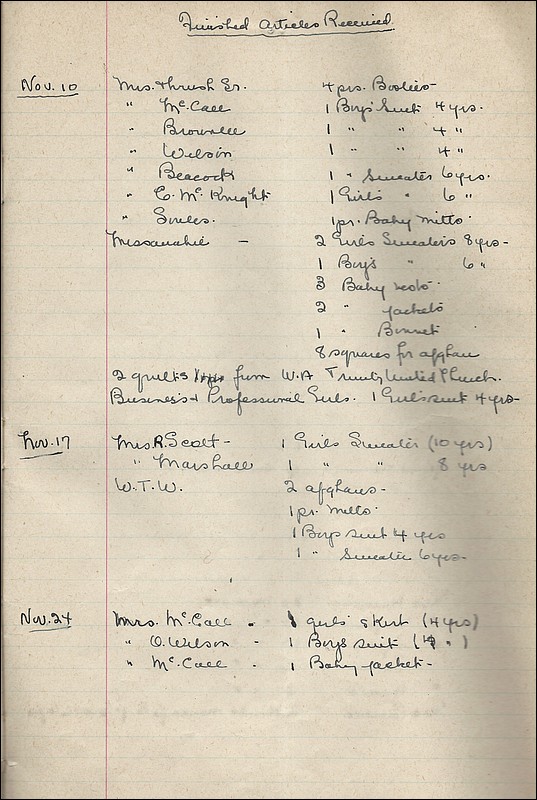 Finished Articles Received.
Nov. 10 Mrs. Thrush Sr. 4 prs. Booties
" McCall 1 Boys' Suit 4 yrs.
" Brownlee 1 " " 4 "
" Wilson 1 " " 4 "
" Peacock 1 " Sweater 6 yrs.
" C. McKnight 1 Girls " 6 "
" Soules. 1 pr. Baby mitts.
Missanabie - 2 Girls Sweaters 8 yrs -
1 Boy's " 6 "
3 Baby
2 " jackets
1 " Bonnet
8 squares for afghan
2 quilts from W.A Trinity United Church.
Business & Professional Girls. 1 Girls suit 4 yrs -
Nov. 17 Mrs R. Scott - 1 Girls Sweater (10 yrs)
" Marshall 1 " " 8 yrs
W.T.W. 2 afghans -
1 pr. mitts.
1 Boys suit 4 yrs
1 " Sweater 6 yrs.
Nov. 24 Mrs. McCall - 1 girls' skirt (4 yrs)
" O. Wilson - 1 Boys suit (4 " )
" McCall - 1 Baby jacket -